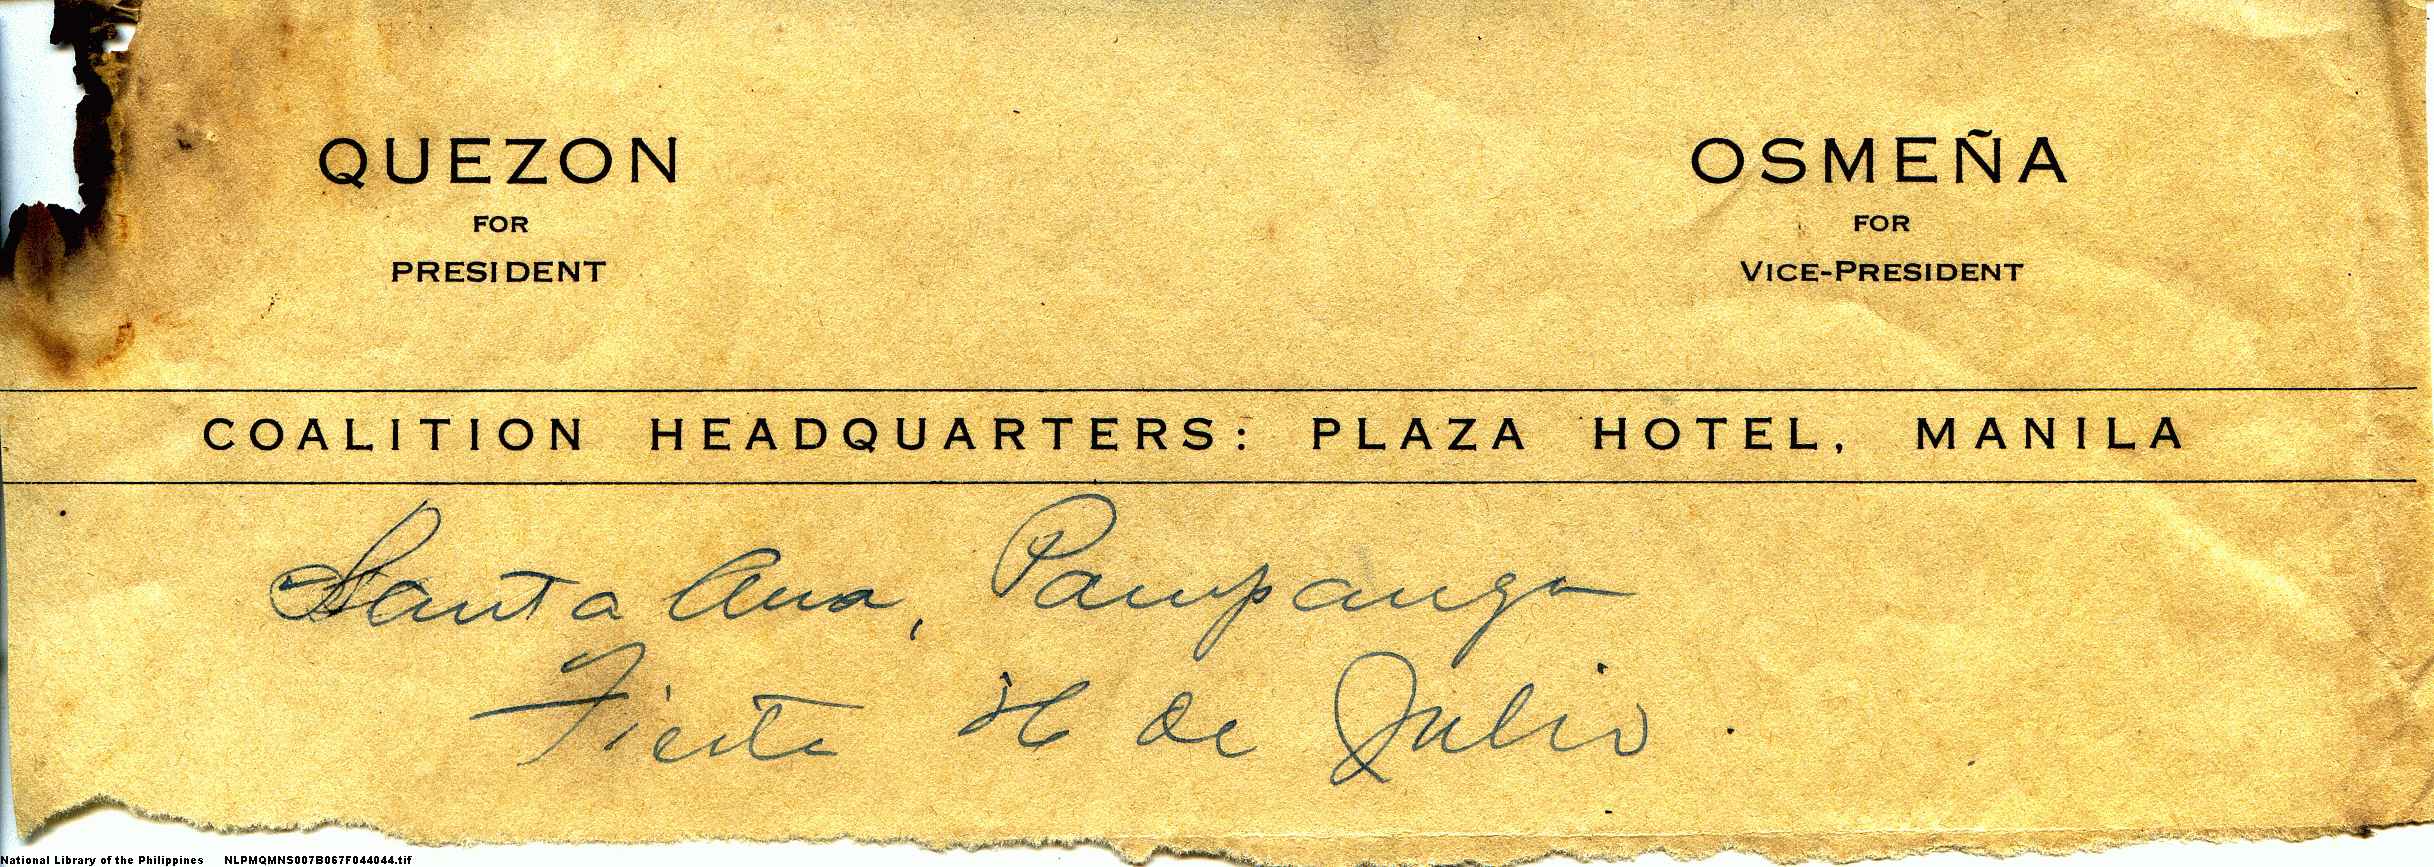 QUEZON
FOR
PRESIDENT
OSMEÑA
FOR
VICE-PRESIDENT
COALITION HEADQUARTERS: PLAZA HOTEL, MANILA
Santa Ana, Pampanga
Fiesta 26 de Julio.
National Library of the Philippines NLPMQMNS007B067F044044.tif